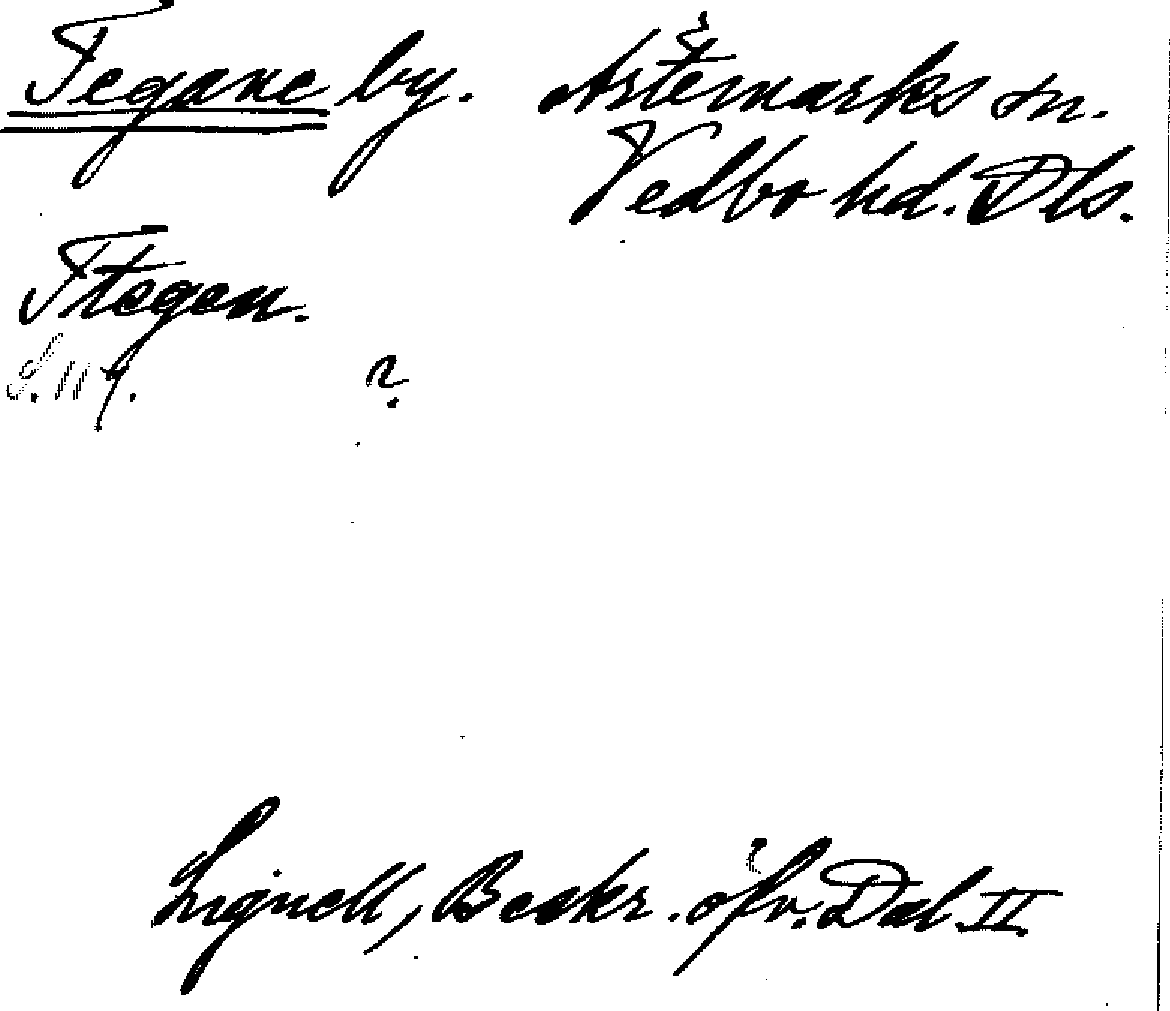 Tegane by. Ärtemarks sn.
Vedbo hd. Dls.
Ttegen.
S. 117. ?
Lignell, Beskr. öfv. Dal. II.